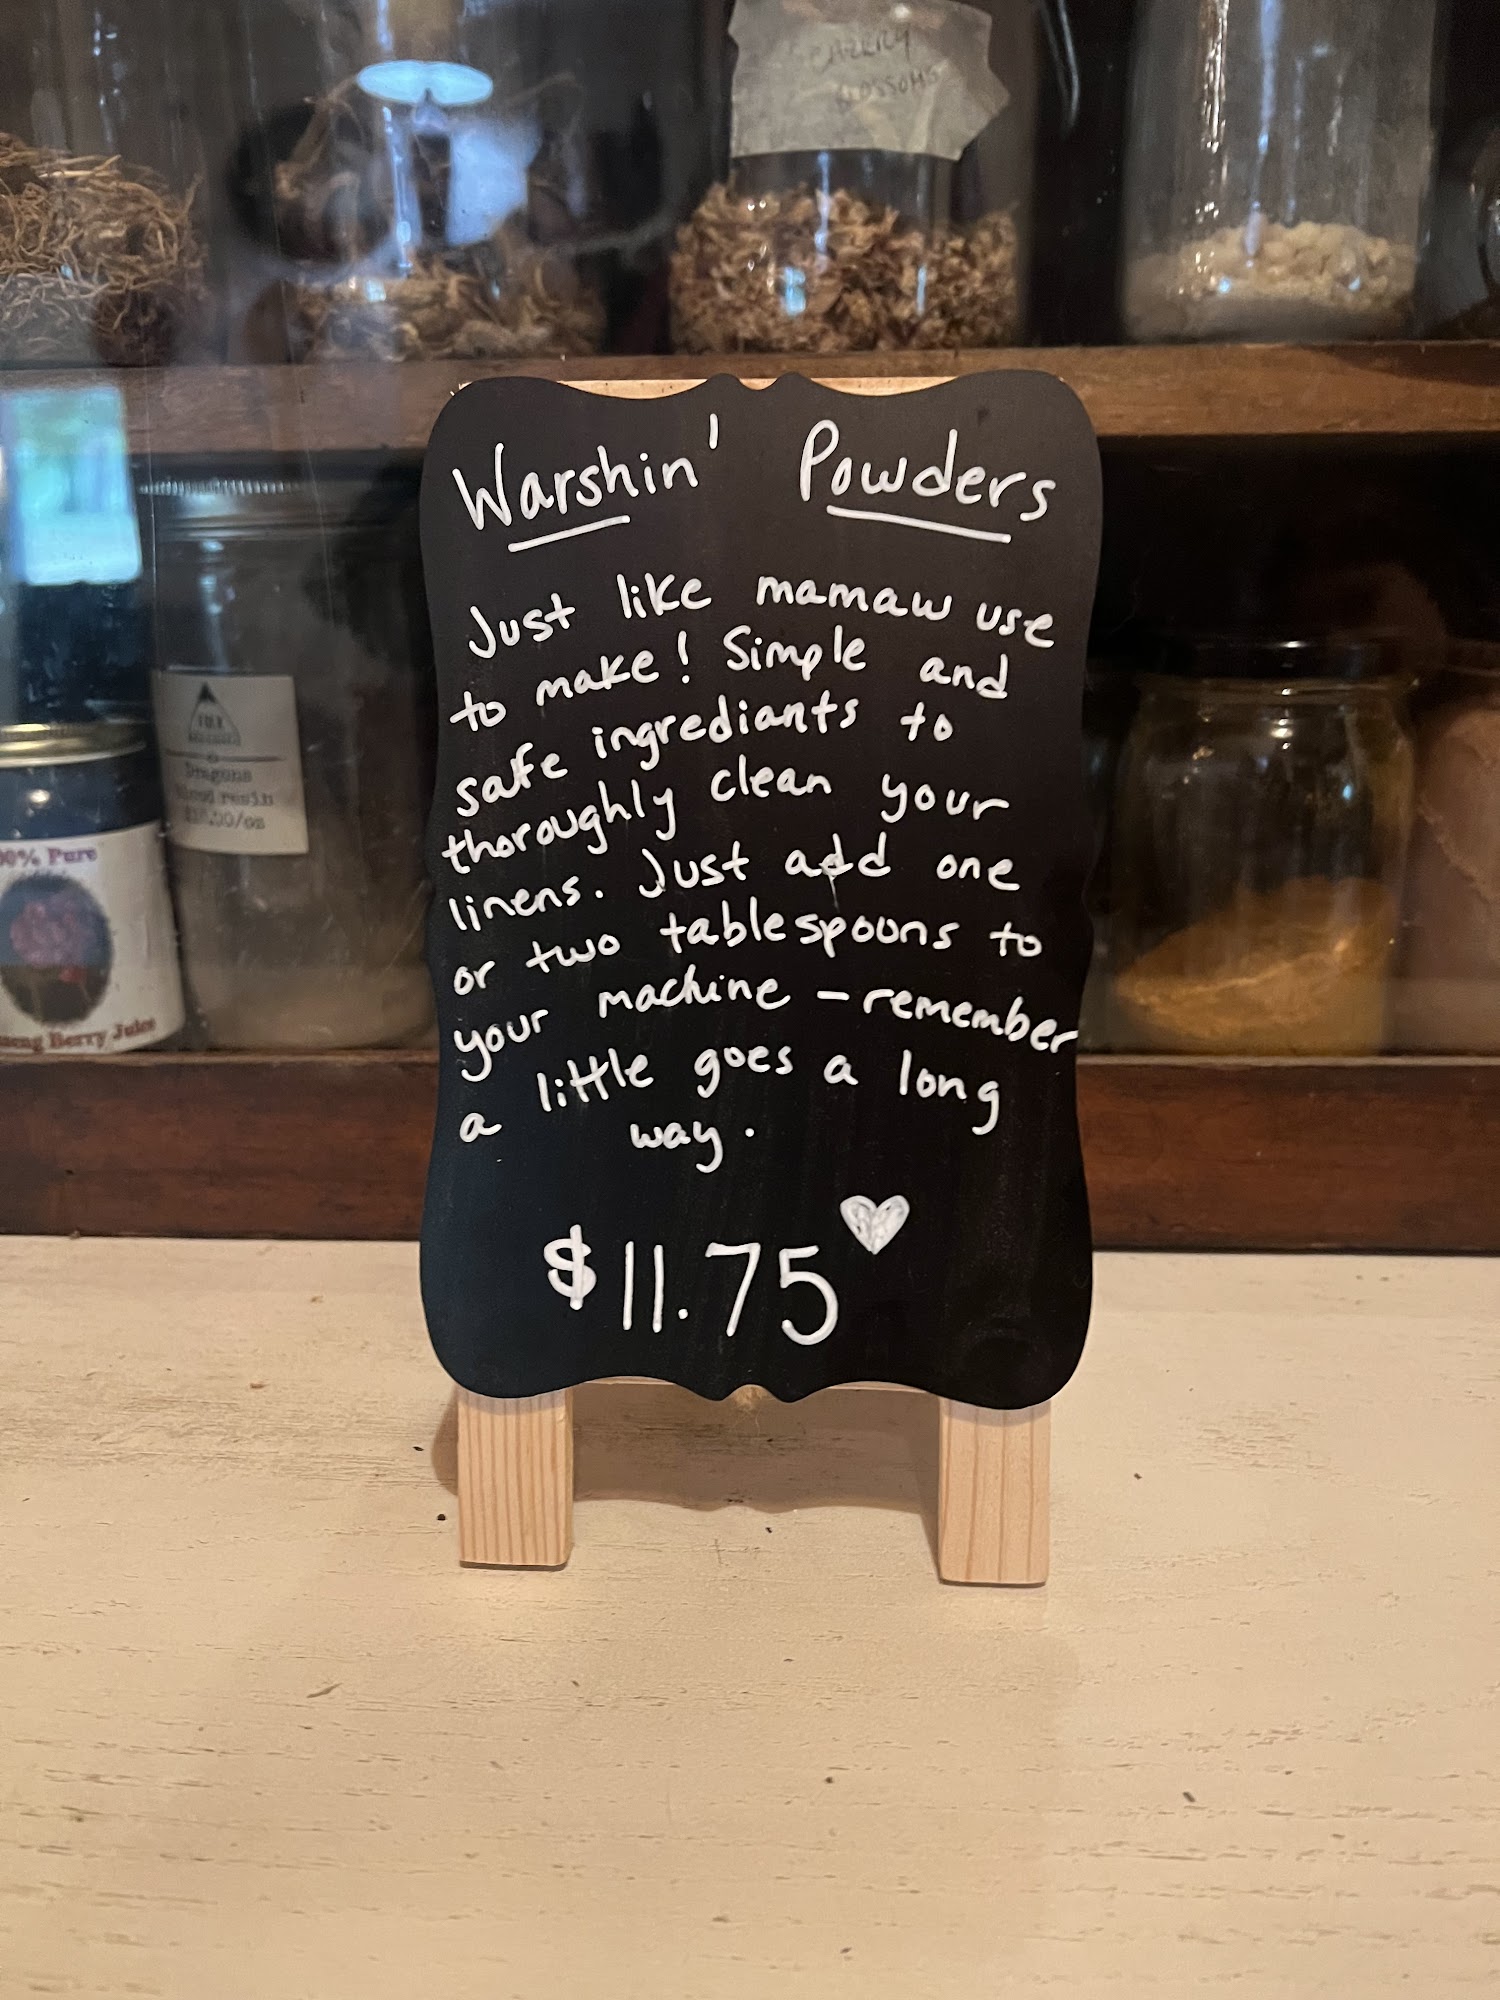 CHERRY
BLOSSOMS
Warshin' Powders
Just like mamaw use
to make! Simple and
safe ingrediants to
thoroughly clean your
linens. Just add one
or two tablespoons to
your machine - remember
a little goes a long
way.
$11.75
Dragons
blood resin
00% Pure
Berry Juice